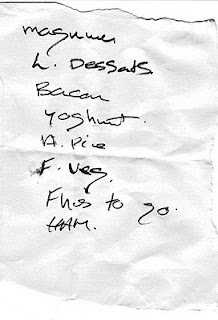 magnums
L. Dessats
Bacon
Yoghurt.
A. Pie
F. Veg.
to go.
HAM.